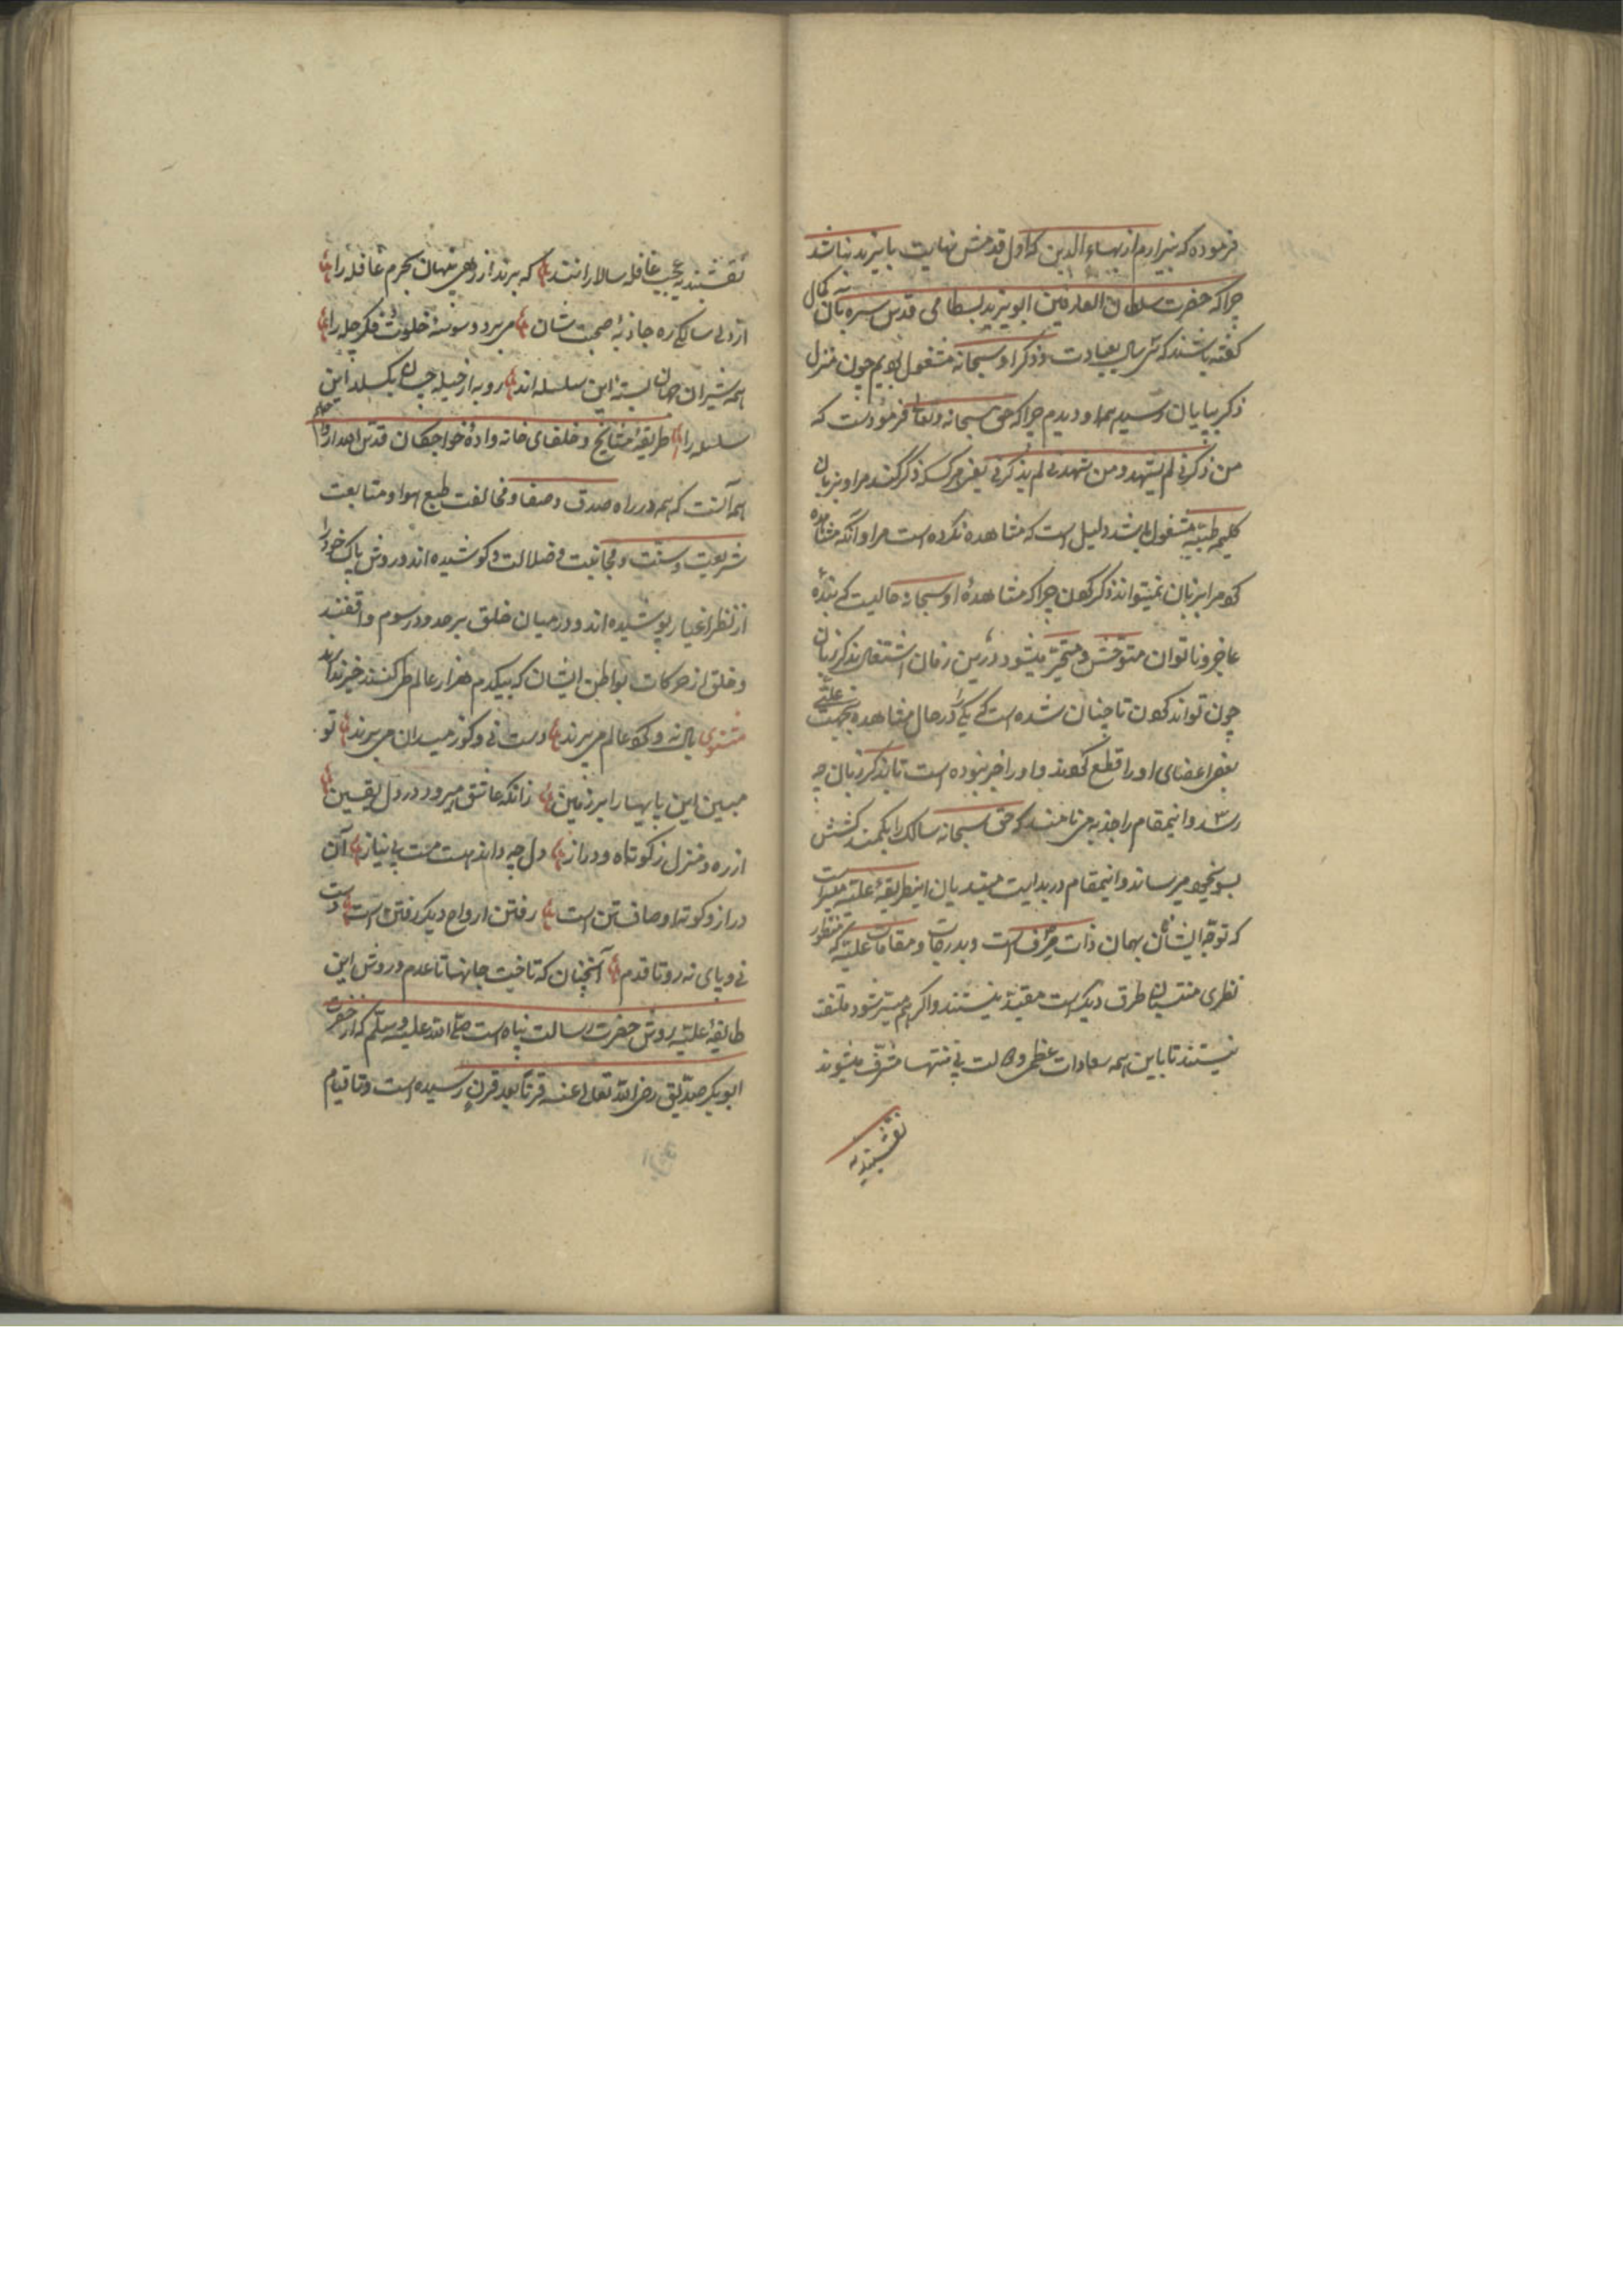 فرموده که بیزارم از بهاءالدین که اول قدمش نهایت بایزید نباشد
چرا که حضرت سلطان العارفین ابو یزید بسطامی قدس سره بآن کمال
گفته باشند که سی سال بعبادت و ذکر او سبحانه مشغول بودیم چون منزل
ذکر بپایان رسید همه او دیدم چرا که حق سبحانه و تعالی فرموده است که
من ذکرنی لم یشهد و من شهدنی لم یذکرنی یعنی هر کسکه ذکر کند مرا و بزبان
کلیمه طیبه مشغول باشد دلیل است که مشاهده نکرده است مرا و آنکه مشاهده
کند مرا بزبان نمیتواند ذکر کردن چرا که مشاهدهٔ او سبحانه حالیست که بندهٔ
عاجز و ناتوان متوحش و متحیر میشود درین زمان اشتغال بذکر زبان
چون تواند کردن تا چنان شده است که یکی را در حال مشاهده بجهت علتی
بعضی اعضای او را قطع کردند و او را خبر نبوده است تا بذکر زبان چه
رسد و اینمقام را جذبه می نامند که حق سبحانه سالک را بکمند کشش
بسوی خود میرساند و اینمقام در بدایت مبتدیان اینطریقهٔ علیه میسر است
که توجه ایشان بهمان ذات صرف است و بدرجات و مقامات علیه که منظور
نظری منتسبان طرق دیگر است مقید نیستند و اگر هم میسر شود ملتفت
نیستند تا باین همه سعادات عظمی و حالت بی منتها مشرف میشوند
نقشبندیه
نقشبندیه عجب قافله سالارانند که برند از ره پنهان بحرم قافله را
از دل سالک ره جاذبهٔ صحبت شان می برد وسوسهٔ خلوت و فکر چله را
همه شیران جهان بستهٔ این سلسله اند روبه از حیله چسان بکسلد این
سلسله را طریقهٔ مشایخ و خلفای خانوادهٔ خواجکان قدس الله ارواحهم
همه آنست که همه در راه صدق و صفا و مخالفت طبع و هوا و متابعت
شریعت و سنت و مجانبت ضلالت کوشیده اند و روش پاک خود را
از نظر اغیار پوشیده اند و در میان خلق بر حدود و رسوم واقفند
و خلق از حرکات بواطن ایشان که بیکدم هزار عالم طی کنند خبر ندارند
مثنوی بال نه و گرد عالم می پرند دست نی و گوز میدان می برند تو
مبین این پایها را بر زمین زانکه عاشق میرود در دل یقین
از ره و منزل ز کوتاه و دراز دل چه داند هست مست بی نیاز آن
دراز و کوته اوصاف تن است رفتن ارواح دیگر رفتن است دست
نی و پای نه رو تا قدم آنچنان که تاخت جانها تا عدم و روش این
طایفهٔ علیه روش حضرت رسالت پناه است صلی الله علیه و سلم که از حضرت
ابوبکر صدیق رضی الله تعالی عنه قرنا بعد قرن رسیده است و تا قیام